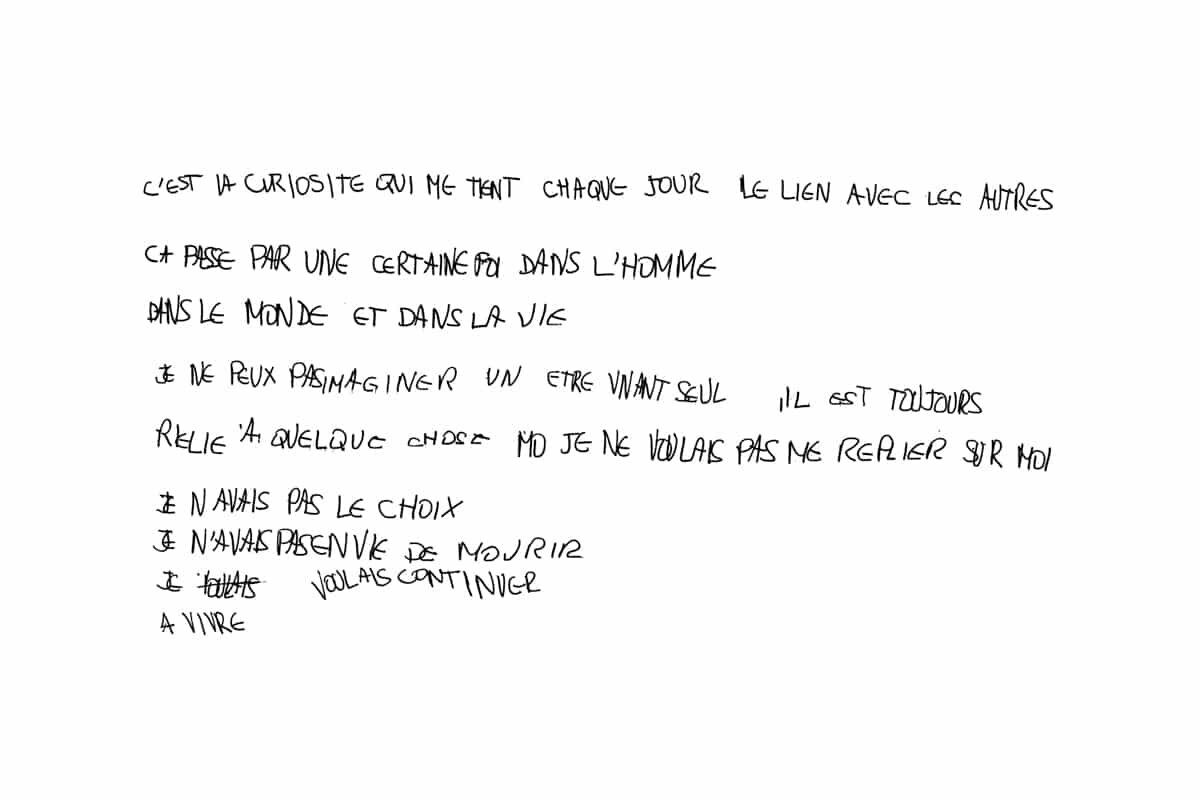 C'EST LA CURIOSITE QUI ME TIENT CHAQUE JOUR LE LIEN AVEC LES AUTRES
CA PASSE PAR UNE CERTAINE FOI DANS L'HOMME
DANS LE MONDE ET DANS LA VIE
JE NE PEUX PAS IMAGINER UN ETRE VIVANT SEUL , IL EST TOUJOURS
RELIE A QUELQUE CHOSE MOI JE NE VOULAIS PAS ME REPLIER SUR MOI
JE N AVAIS PAS LE CHOIX
JE N'AVAIS PAS ENVIE DE MOURIR
JE VOULAIS VOULAIS CONTINUER
A VIVRE